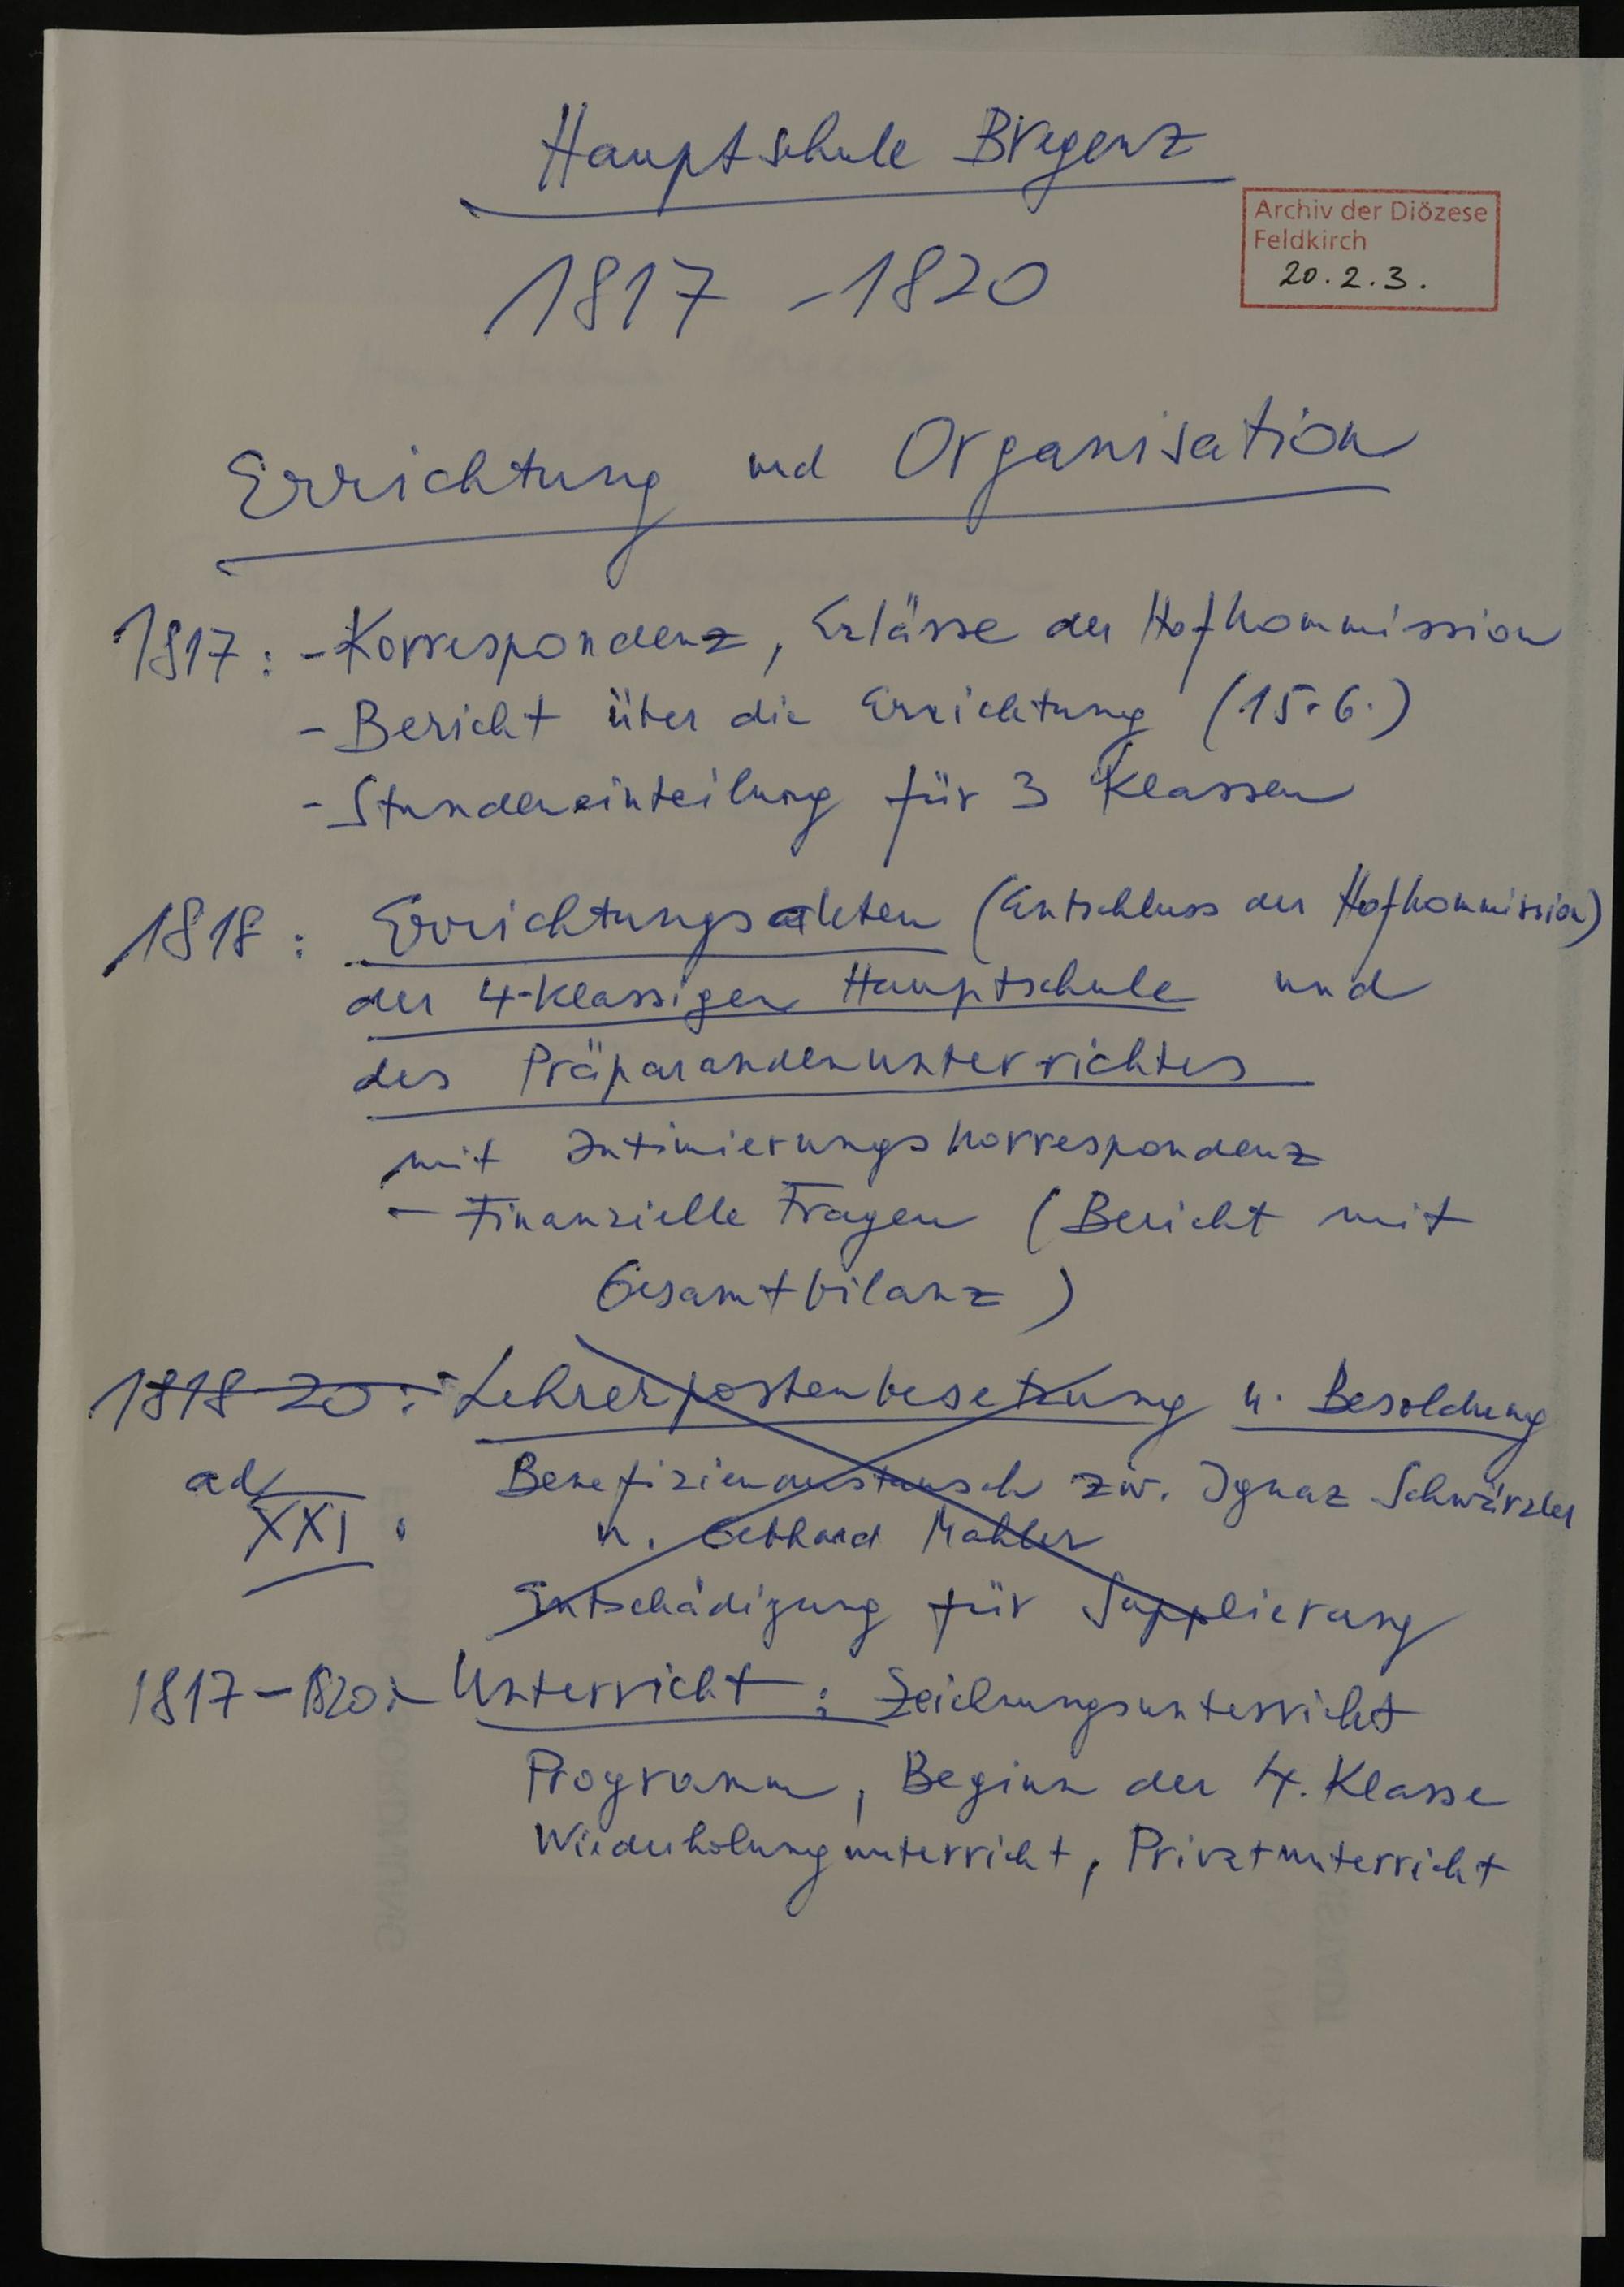 Hauptschule Bregenz
Archiv der Diözese
Feldkirch
20.2.3.
1817 - 1820
Errichtung und Organisation
1817: - Korrespondenz, Erlässe der Hofkommission
- Bericht über die Errichtung (15.6.)
- Stundeneinteilung für 3 Klassen
1818: Errichtungsakten (Entschluss der Hofkommission)
der 4-klassigen Hauptschule und
des Präparandenunterrichtes
mit Intimierungskorrespondenz
- Finanzielle Fragen (Bericht mit
Gesamtbilanz)
1818-20: - Lehrerpostenbesetzung u. Besoldung
ad Benefizienaustausch zw. Ignaz Schwärzler
XXI: u. Gebhard Mahler
Entschädigung für Supplierung
1817-1820: - Unterricht: Zeichnungsunterricht
Programm, Beginn der 4. Klasse
Wiederholungunterricht, Privatunterricht